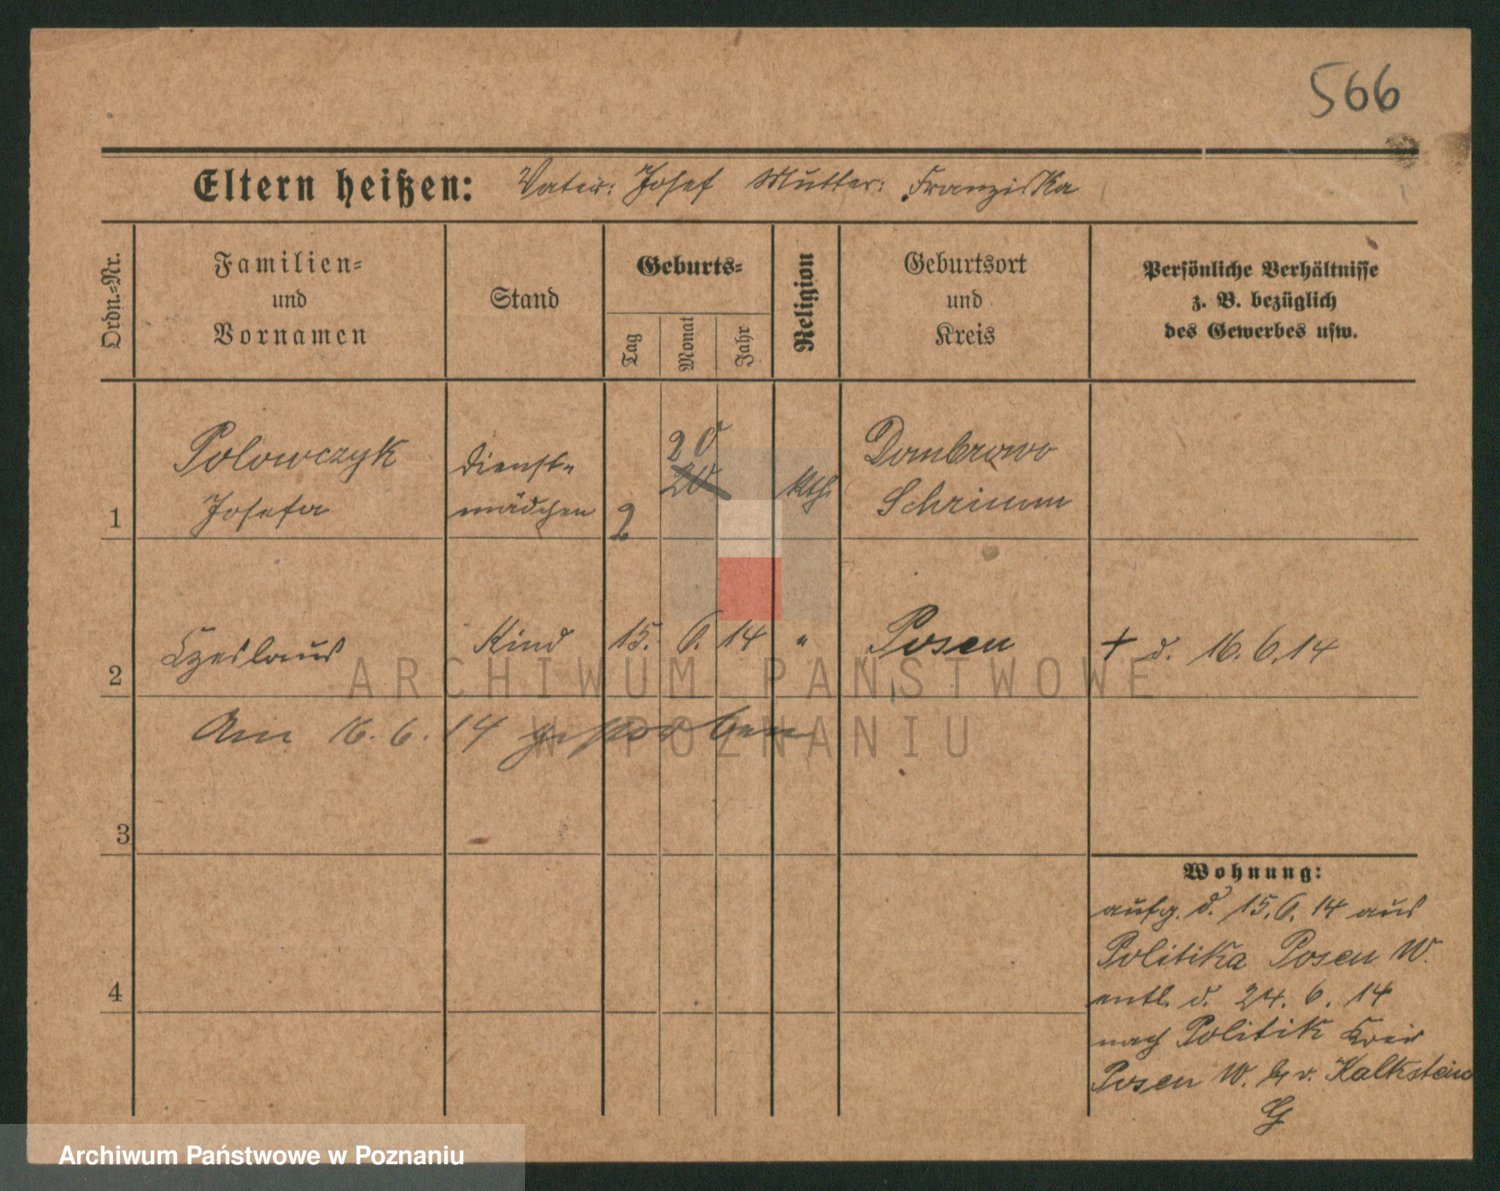 566
Eltern heißen: Vater: Josef Mutter: Franziska
Ordn.-Nr.
Familien- und Vornamen
Stand
Geburts-
Tag
Monat
Jahr
Religion
Geburtsort und Kreis
Persönliche Verhältnisse
z. B. bezüglich
des Gewerbes usw.
1
Polowczyk
Josefa
Dienst-
mädchen
2
20
20
kth.
Dombrowo
Schrimm
2
Czeslaus
Kind
15.
6.
14
"
Posen
† d. 16.6.14
Am 16.6.14 gestorben
3
4
Wohnung:
aufg. d. 15.6.14 aus
Politika Posen W.
entl. d. 24.6.14
nach Politik Kreis
Posen W. b. v. Kalkstein
ARCHIWUM PAŃSTWOWE
W POZNANIU
Archiwum Państwowe w Poznaniu